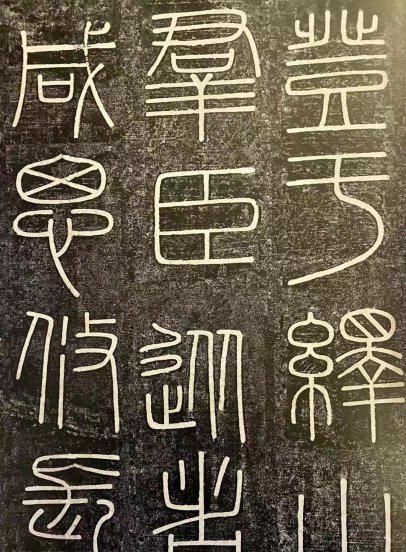 登于繹山
羣臣從者
咸思攸長